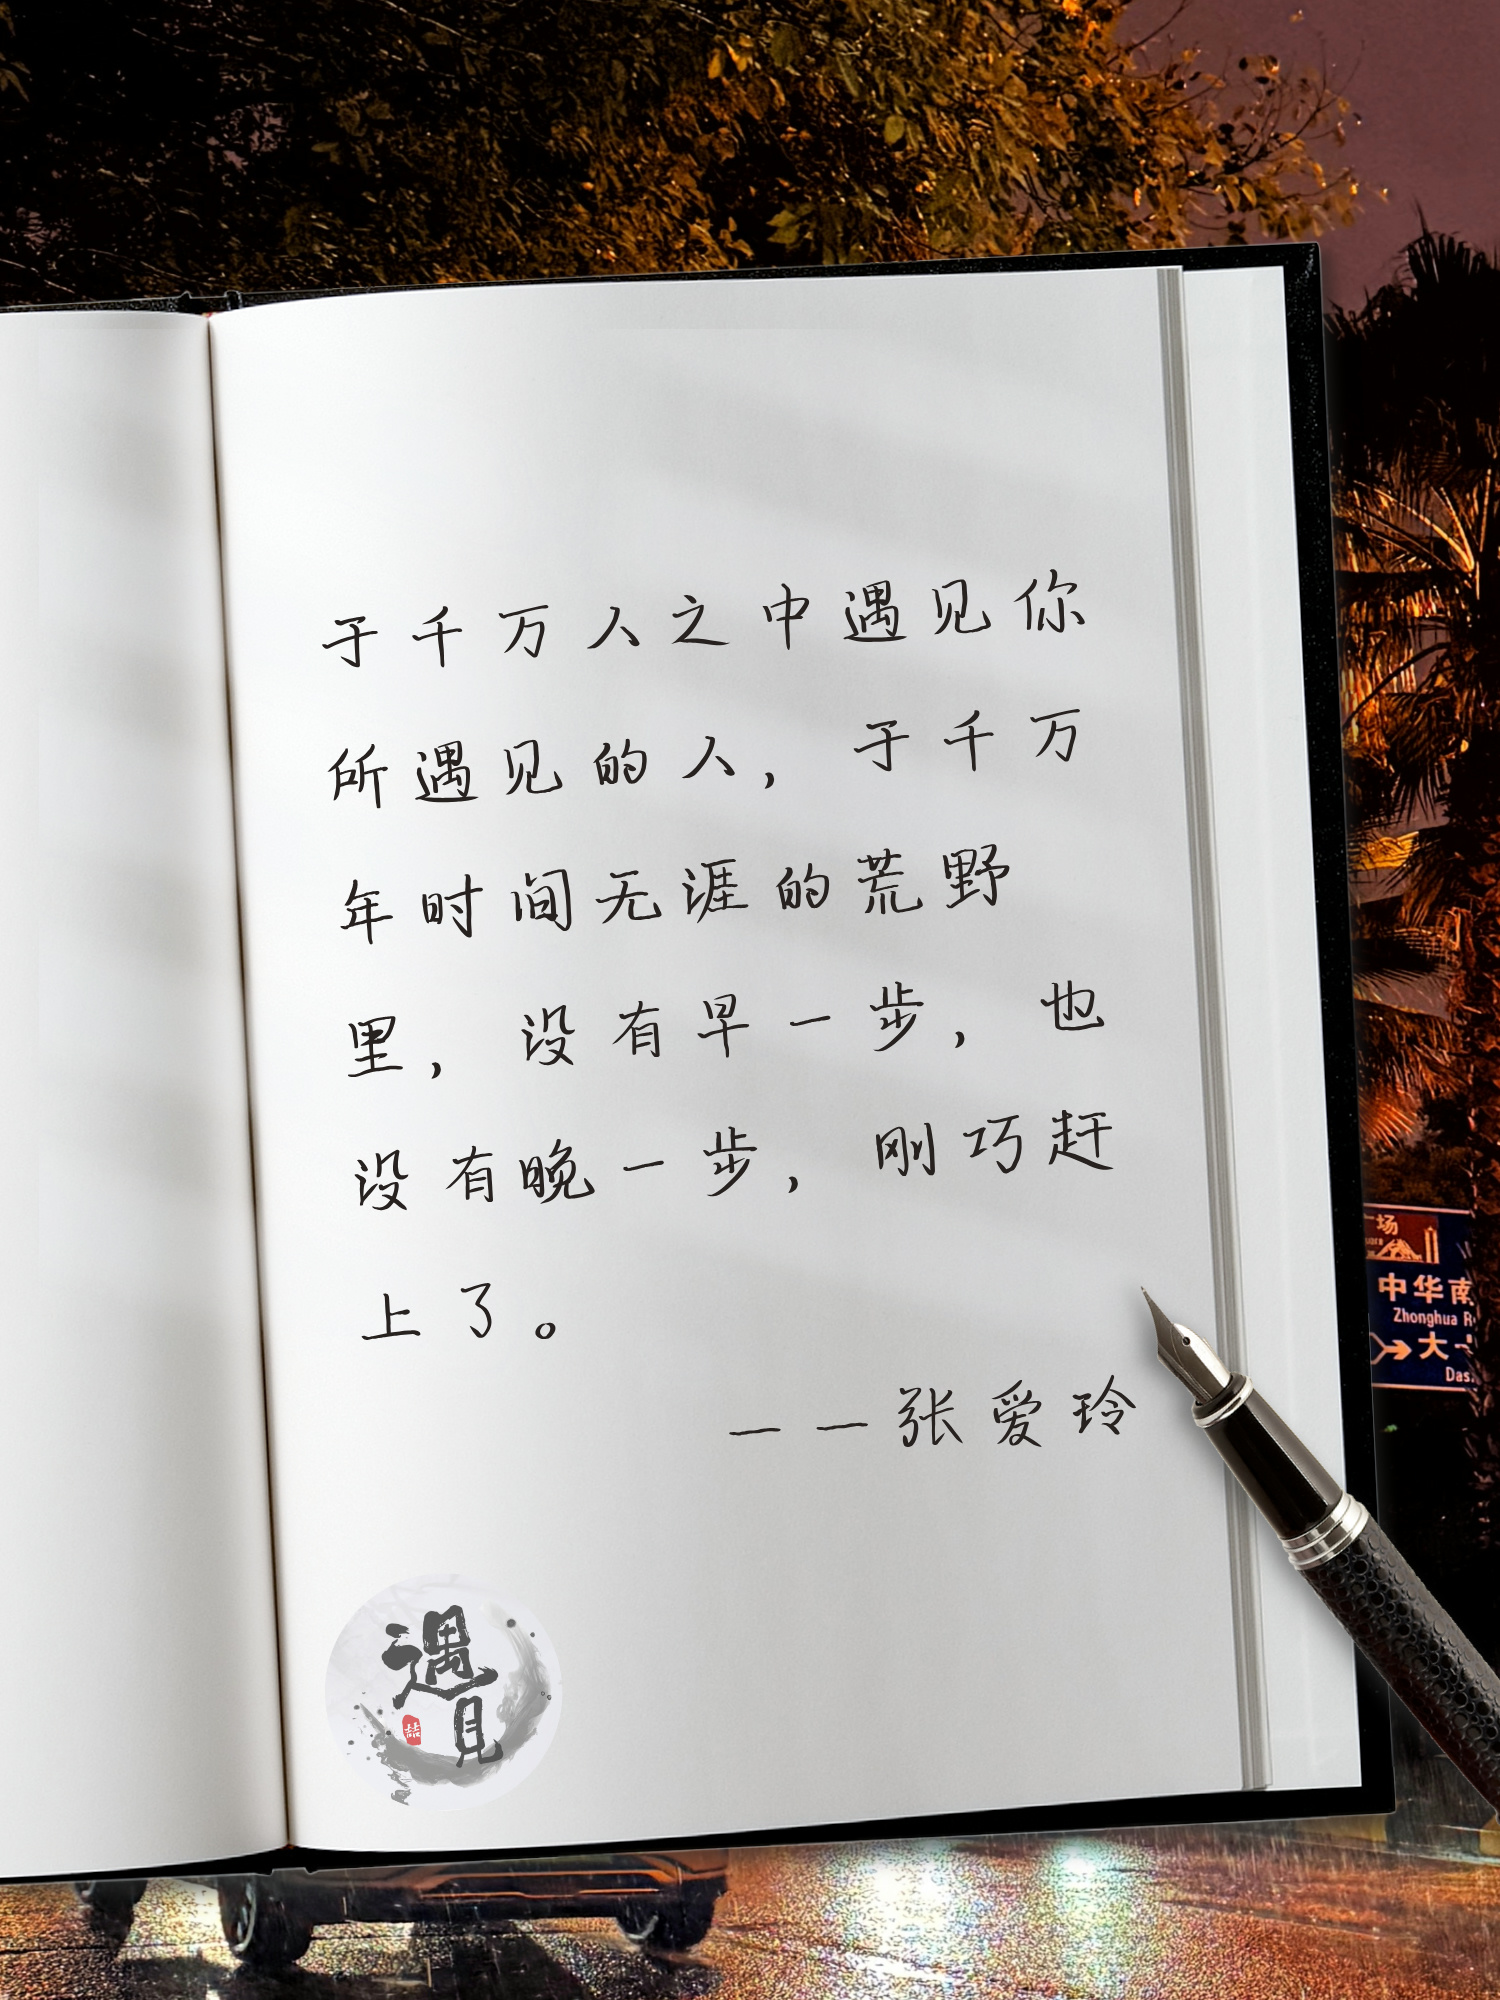 于千万人之中遇见你
所遇见的人，于千万
年时间无涯的荒野
里，没有早一步，也
没有晚一步，刚巧赶
上了。
——张爱玲
遇
见
喆
广场
中华南
Zhonghua R
大
Das